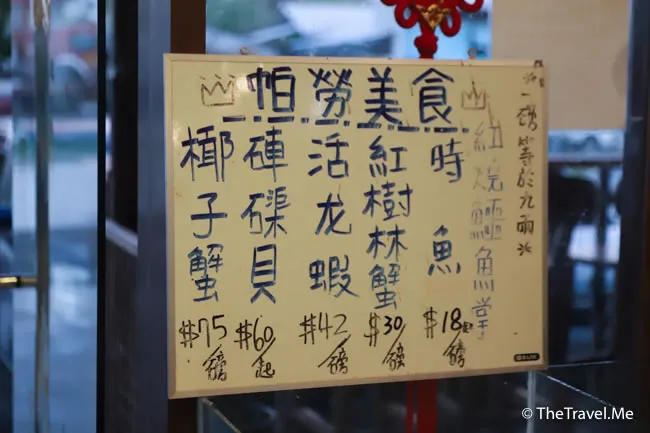 帕勞美食
※一磅等於九兩※
紅燒鱷魚掌
時魚
$18起/磅
紅樹林蟹
$30/磅
活龙蝦
$42/磅
硨磲貝
$60/起
椰子蟹
$75/磅
© TheTravel.Me